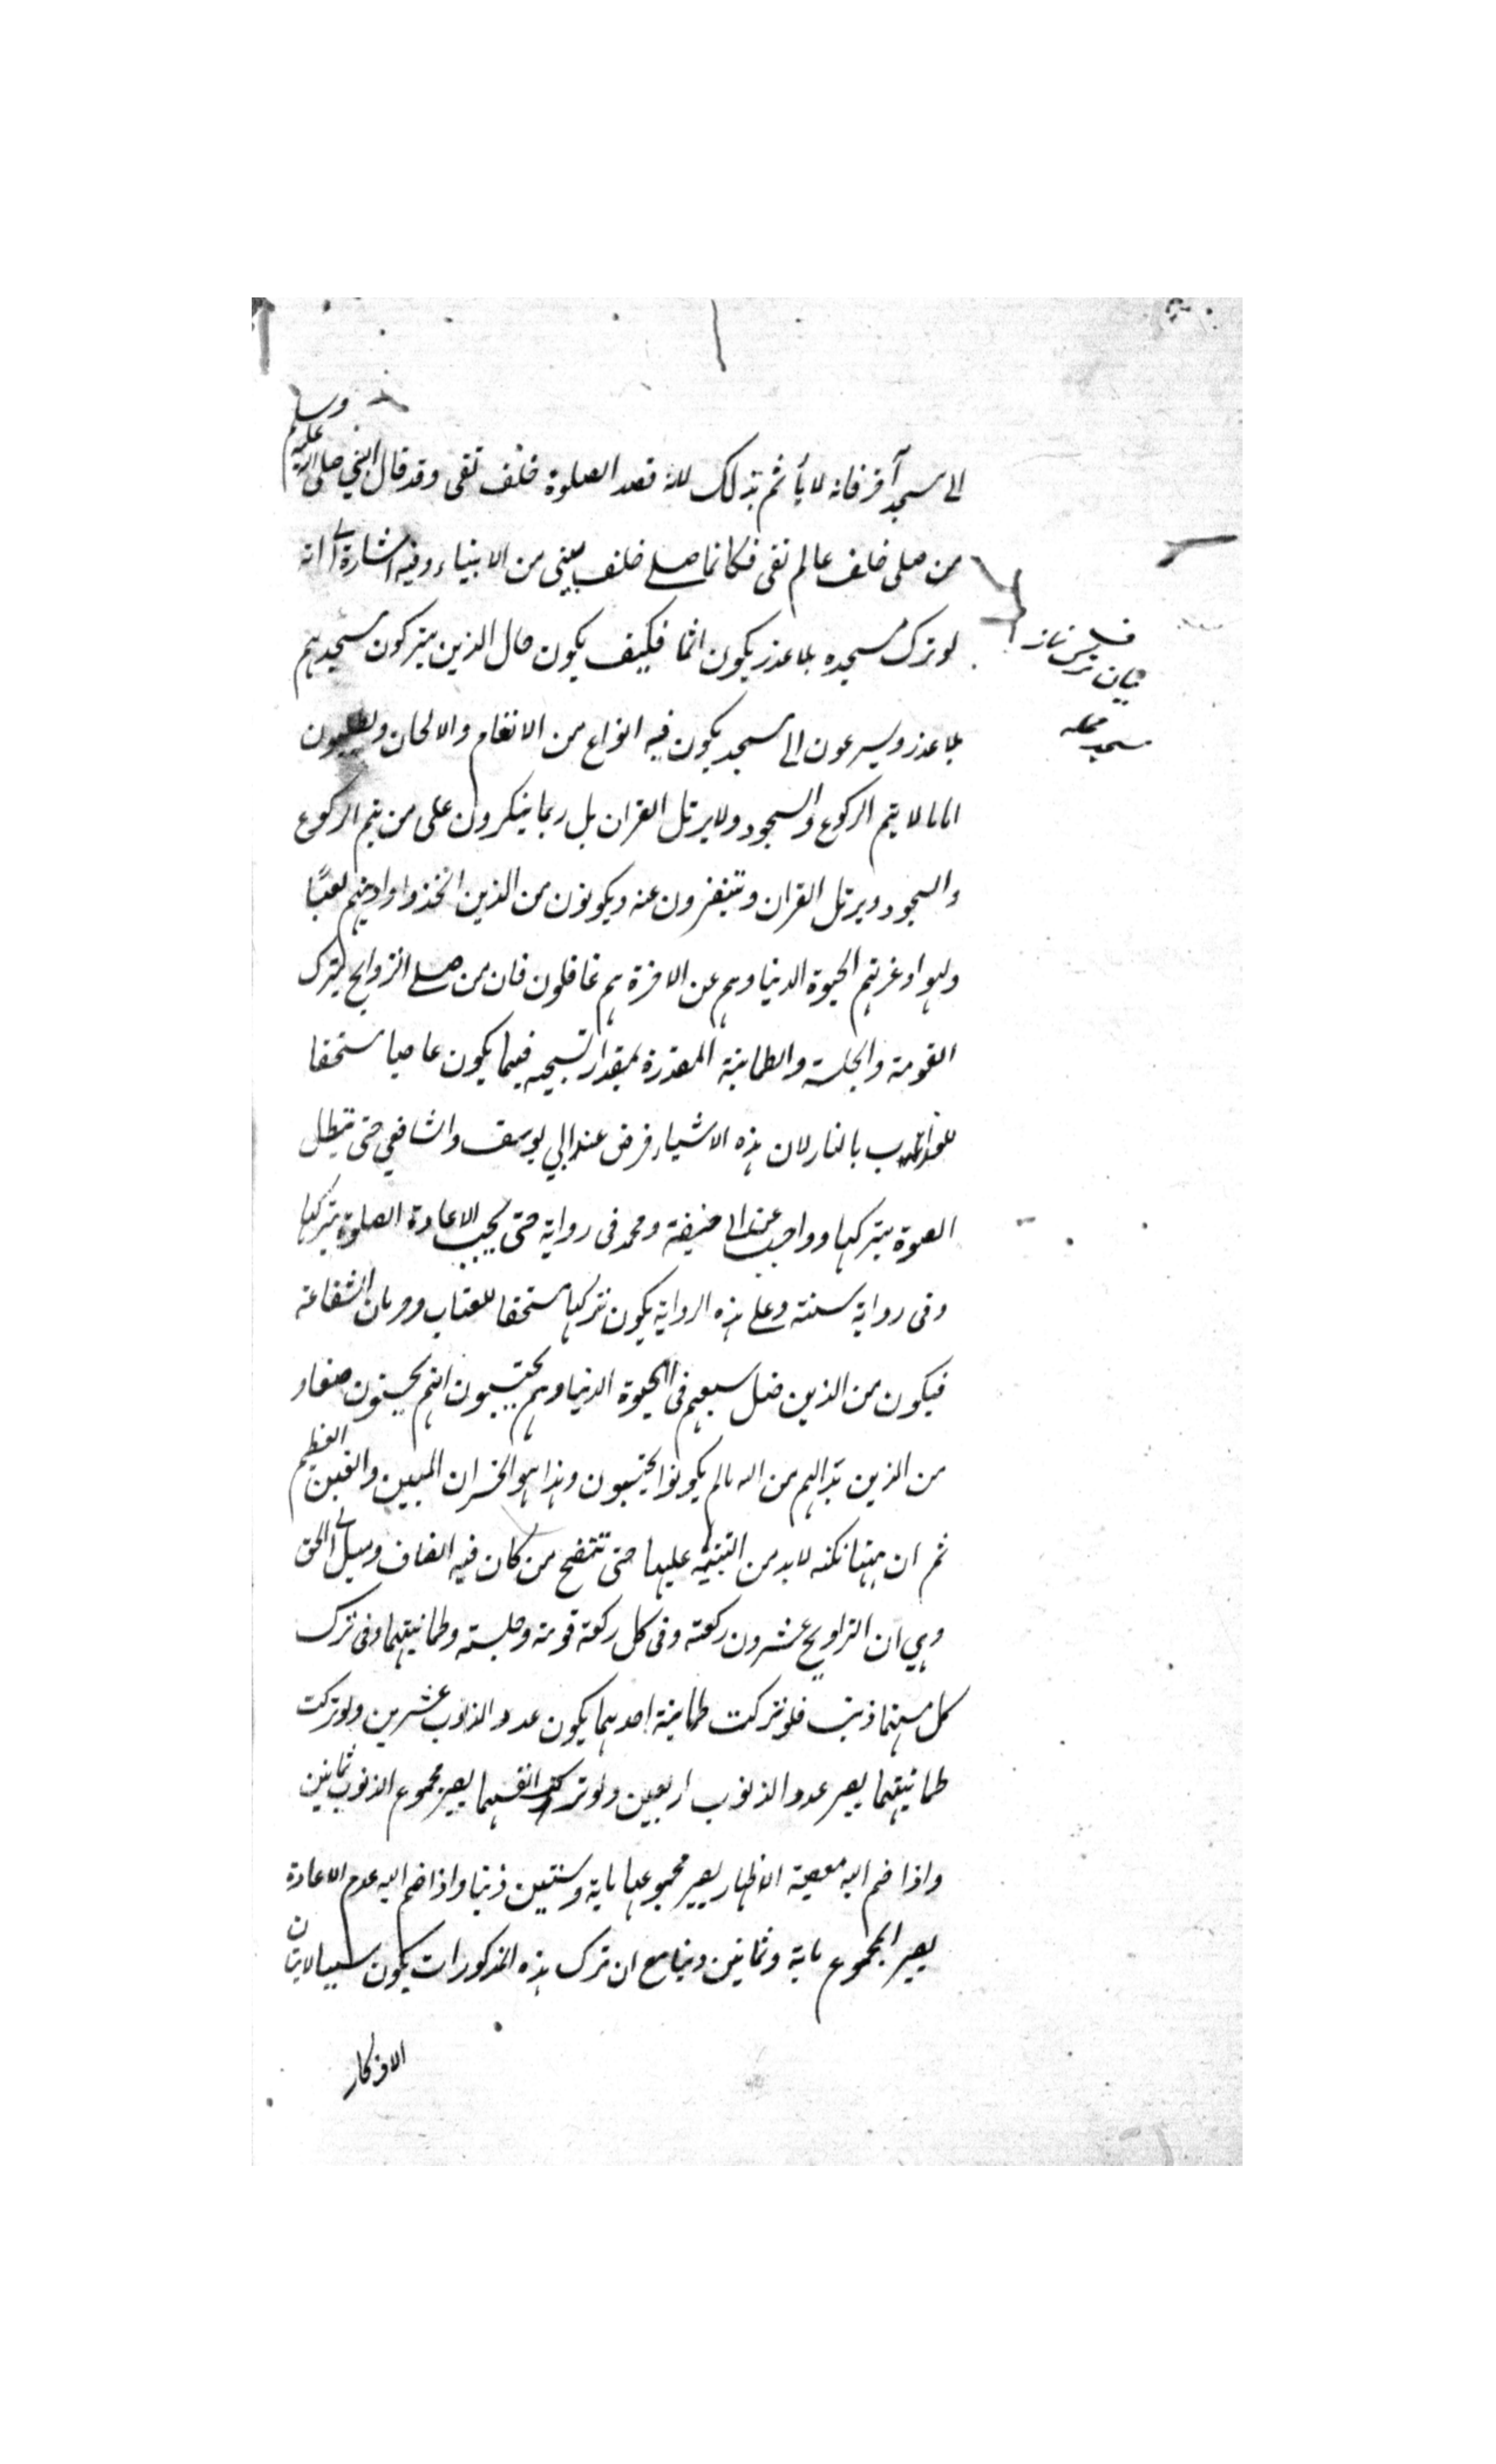 الى مسجد آخر فانه لا يأثم بذلك لانه قصد الصلوة خلف تقى وقد قال النبي صلى الله عليه وسلم
من صلى خلف عالم تقى فكانما صلى خلف نبى من الانبياء وفيه اشارة الى انه
لو ترك مسجده بلا عذر يكون اثما فكيف يكون حال الذين يتركون مسجدهم
بلا عذر ويسرعون الى مسجد يكون فيه انواع من الانغام والالحان ويطلبون
اماما لا يتم الركوع والسجود ولا يرتل القران بل ربما ينكرون على من يتم الركوع
والسجود ويرتل القران ويتنفرون عنه ويكونون من الذين اتخذوا دينهم لعبًا
ولهوا وغرتهم الحيوة الدنيا وهم عن الاخرة هم غافلون فان من صلى التراويح بترك
القومة والجلسة والطمانينة المقدرة بمقدار تسبيحه فيهما يكون عاصيا مستحقا
للعذاب بالنار لان هذه الاشياء فرض عند ابي يوسف والشافعي حتى تبطل
الصلوة بتركها وواجب عند ابى حنيفة ومحمد فى رواية حتى يجب الاعادة الصلوة بتركها
وفى رواية سنة وعلى هذه الرواية يكون تركها مستحقا للعتاب وحرمان الشفاعة
فيكون من الذين ضل سعيهم فى الحيوة الدنيا وهم يحسبون انهم يحسنون صنعا و
من الذين بدا لهم من الله مالم يكونوا يحتسبون وهذا هو الخسران المبين والغبن العظيم
ثم ان ههنا نكتة لابد من التنبيه عليها حتى تتضح من كان فيه انصاف وميل الى الحق
وهي ان التراويح عشرون ركعة وفى كل ركعة قومة وجلسة وطمانينتهما وفى ترك
كل منهما ذنب فلو تركت طمانينة احدهما يكون عدد الذنوب عشرين ولو تركت
طمانينتهما يصير عدد الذنوب اربعين ولو تركت انفسهما يصير مجموع الذنوب ثمانين
واذا ضم اليه معصية الاظهار يصير مجموعها ماية وستين ذنبا واذا ضم اليه عدم الاعادة
يصير المجموع ماية وثمانين ذنبا مع ان ترك هذه المذكورات يكون سببا لاتيان
الاذكار
بيان
مسجد محله